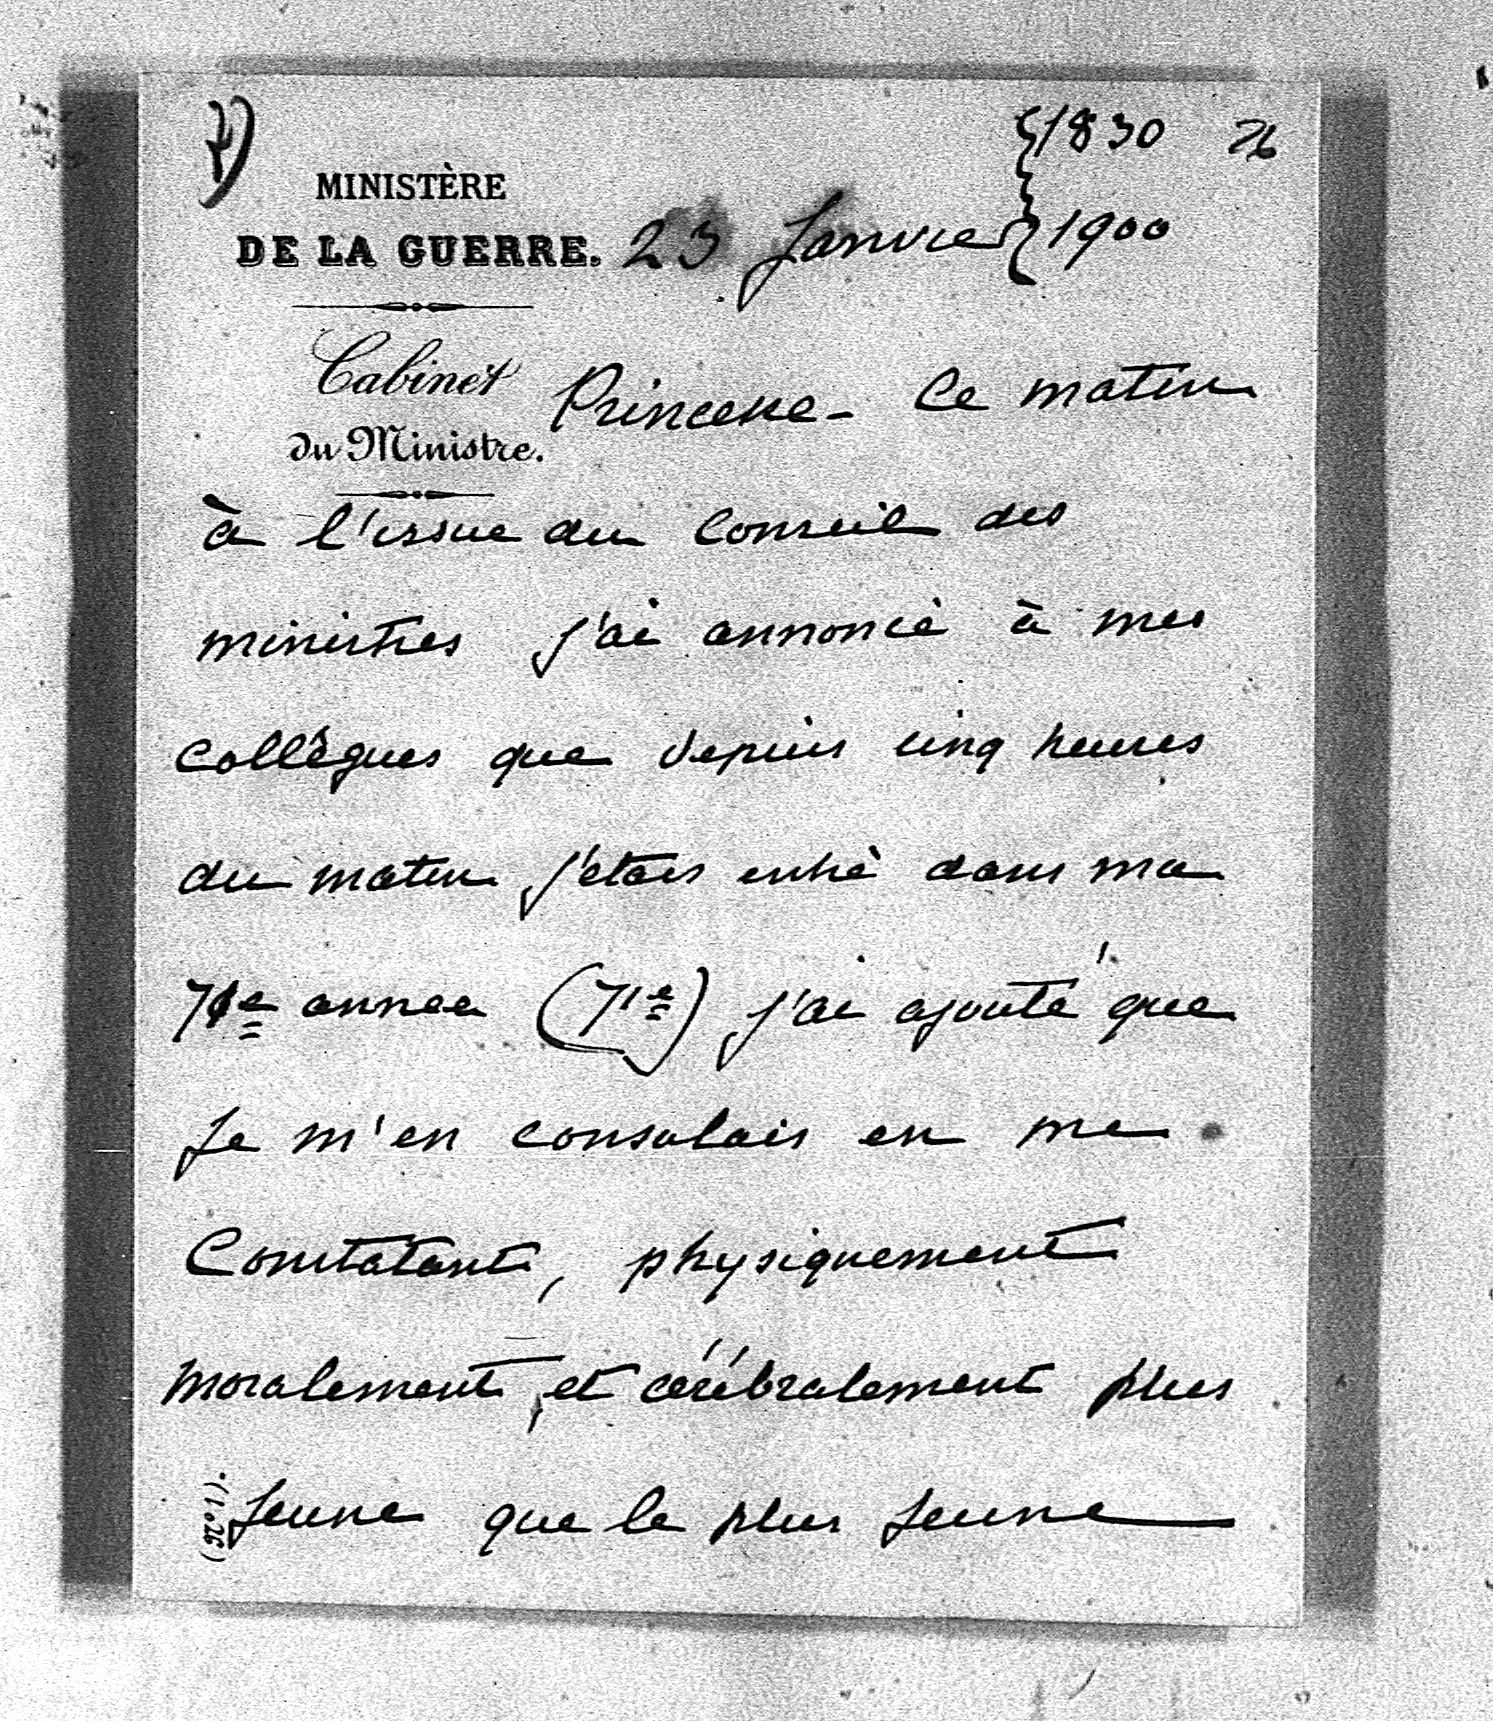 1830 76
MINISTÈRE
DE LA GUERRE. 23 Janvier 1900
Cabinet
du Ministre.
Princesse - Ce matin
à l'issue du Conseil des
ministres j'ai annoncé à mes
collègues que depuis cinq heures
du matin j'étais entré dans ma
71e année (71e) j'ai ajouté que
Je m'en consolais en me
Constatant, physiquement
moralement, et cérébralement plus
Jeune que le plus jeune
(No 1).